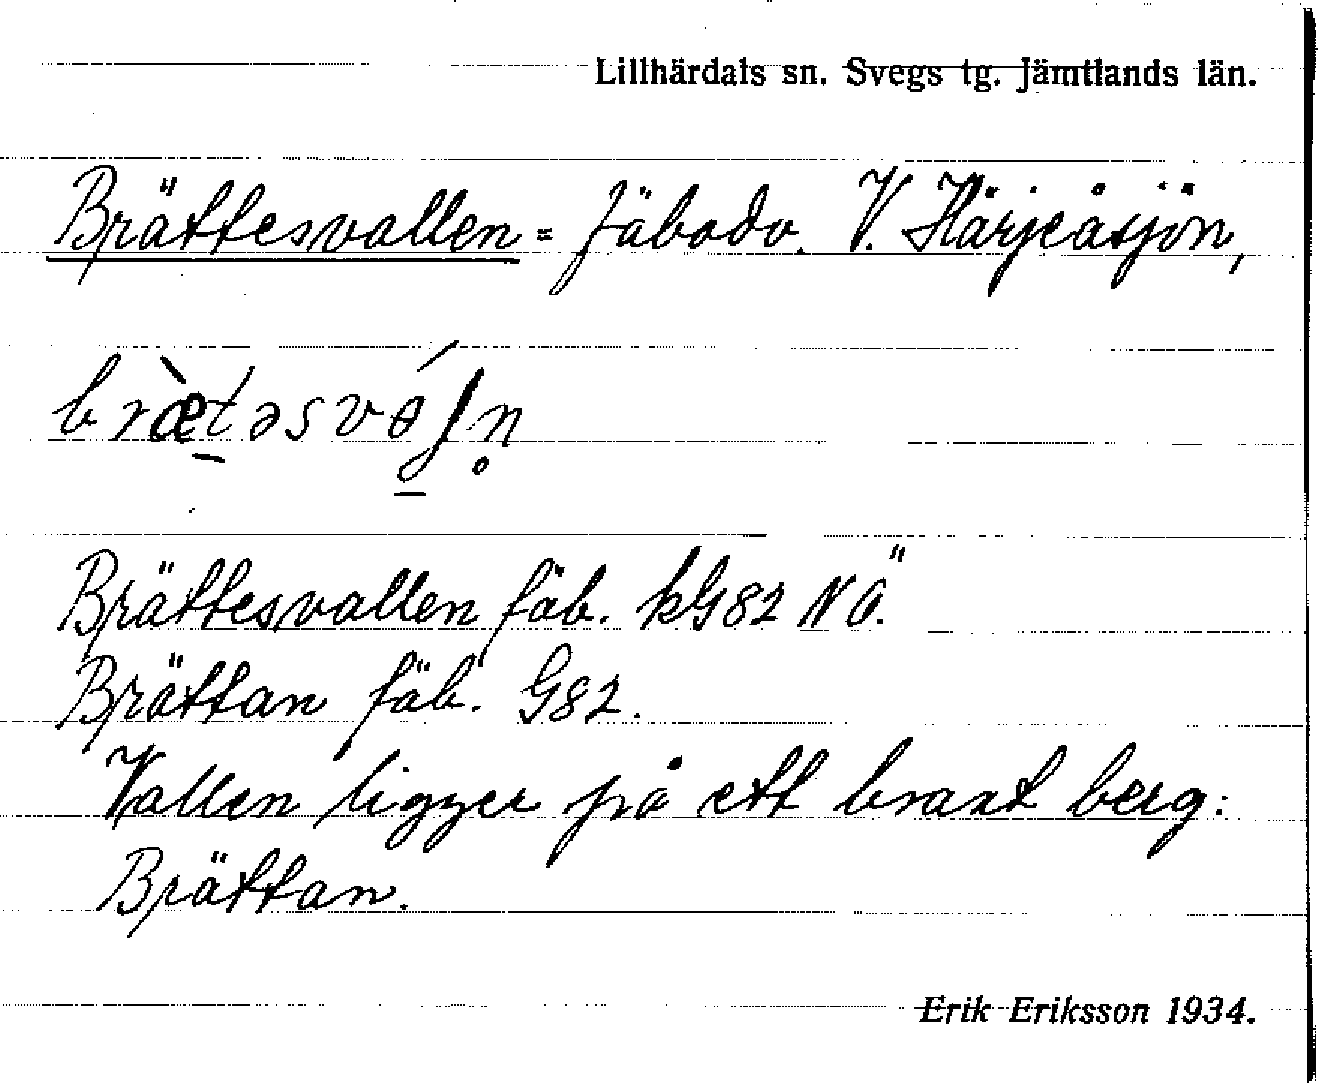 Lillhärdals sn. Svegs tg. Jämtlands län.
Brättesvallen = Fäbodv. V. Härjeåsjön,
bræ̀təsváʃn̥
Brättesvallen fäb. kG82 NÖ.
Brättan fäb. G82.
Vallen ligger på ett brant berg:
Brättan.
Erik Eriksson 1934.